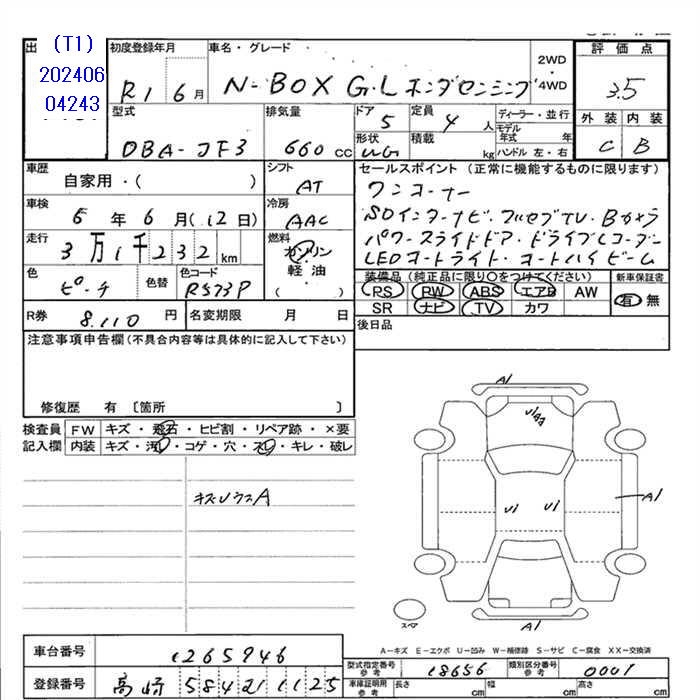 出 (T1) 初度登録年月 車名・グレード 評価点
202406
04243
R1 6月 N-BOX G・L ホンダセンシング 2WD・4WD 3.5
型式 排気量 ドア 定員 ディーラー・並行 外装 内装
DBA-JF3 660cc 5 4人 モデル年式 年 C B
形状 積載 ハンドル 左・右
WG kg
車歴 シフト セールスポイント (正常に機能するものに限ります)
自家用・( ) AT ワンオーナー
車検 冷房 SDインターナビ・フルセグTV・Bカメラ
6年6月(12日) AAC パワースライドドア・ドライブレコーダー
走行 燃料 LEDオートライト・オートハイビーム
3万1千232km ガソリン
軽油
( )
色 色替 色コード 装備品 (純正品に限り○をつけてください) 新車保証書
ピーチ R573P PS PW ABS エアB AW 有 無
SR ナビ TV カワ
R券 8.110円 名変期限 月 日 後日品
注意事項申告欄 (不具合内容等は具体的に記入して下さい)
修復歴 有 〔箇所 〕
検査員 FW キズ・飛石・ヒビ割・リペア跡・×要
記入欄 内装 キズ・汚レ・コゲ・穴・スレ・キレ・破レ
A1
A1
U1
U1
A1
A1
スペア
A-キズ E-エクボ U-凹み W-補修跡 S-サビ C-腐食 XX-交換済
車台番号 1265946
型式指定番号 参考 18656 類別区分番号 参考 0001
登録番号 高崎 584 1125
車庫証明用 参考 長さ cm 幅 cm 高さ cm